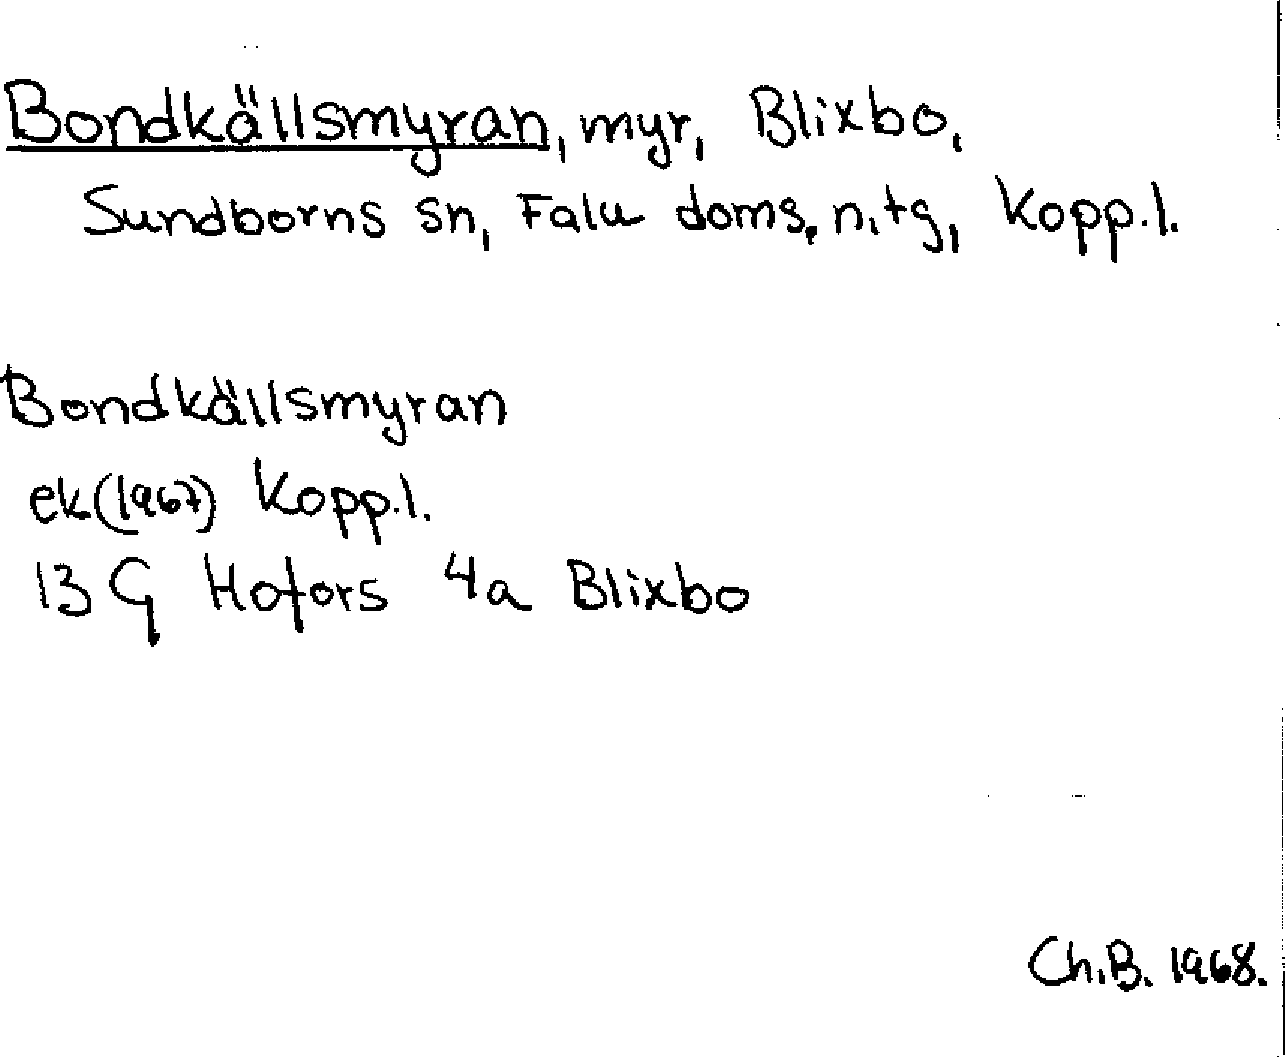 Bondkällsmyran, myr, Blixbo,
Sundborns sn, Falu doms. n. tg, Kopp.l.
Bondkällsmyran
ek (1967) Kopp.l.
13 G Hofors 4a Blixbo
Ch.B. 1968.